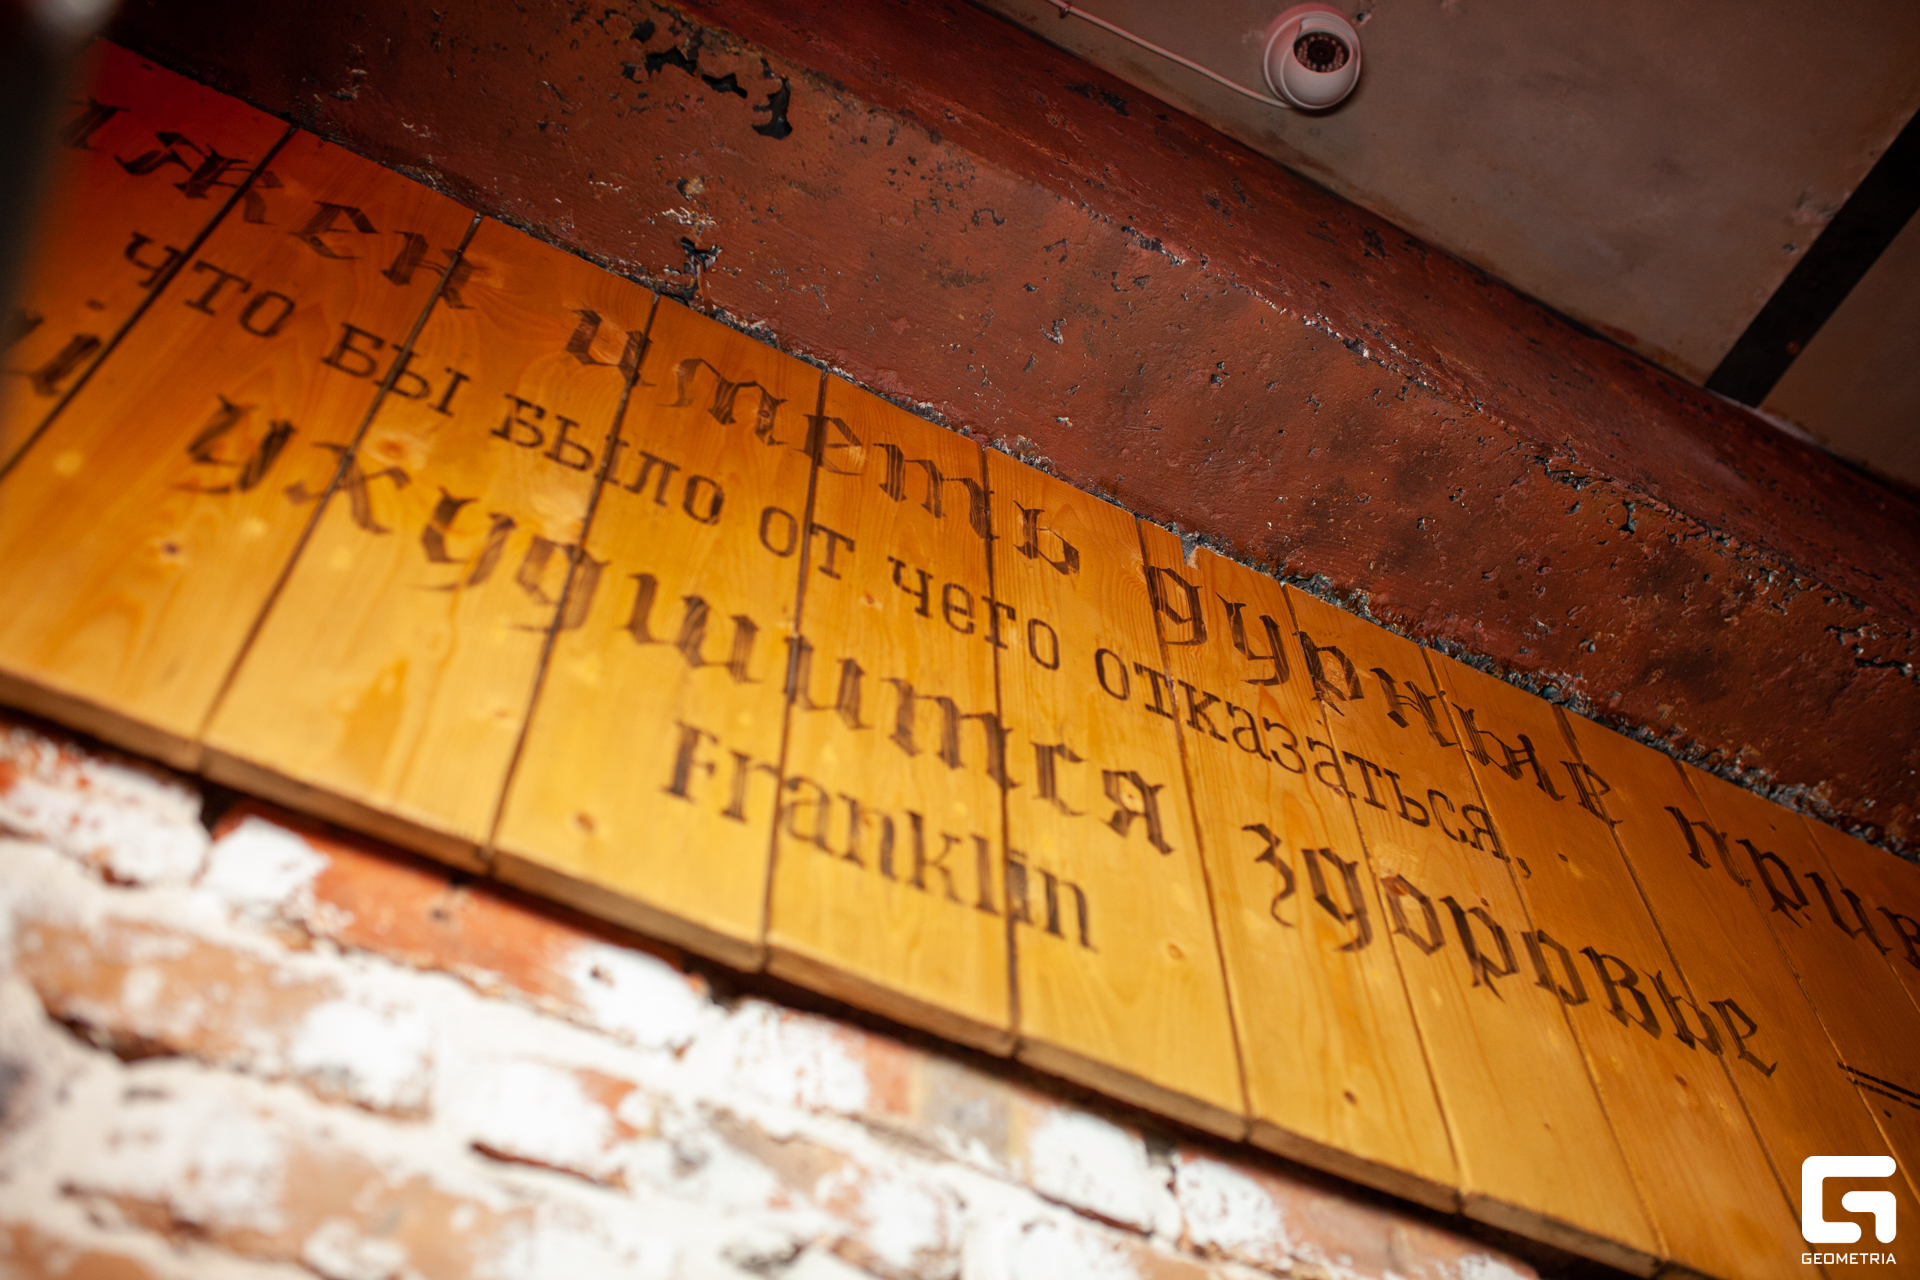 иметь дурные
что бы было от чего отказаться,
ухудшится здоровье
Franklin
GEOMETRIA